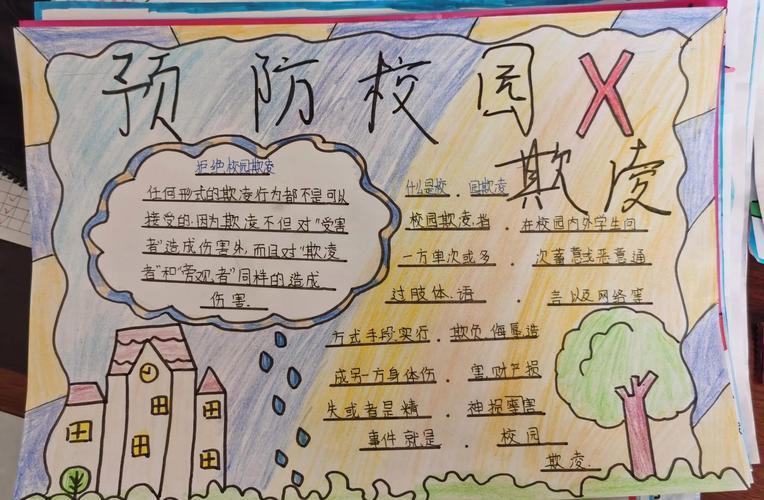 预防校园
欺凌
拒绝校园欺凌
任何形式的欺凌行为都不是可以
接受的.因为欺凌不但对"受害
者"造成伤害外,而且对"欺凌
者"和"旁观者"同样的造成
伤害.
什么是校.园欺凌
校园欺凌,指.在校园内外学生间
一方单次或多.次蓄意或恶意通
过肢体、语.言以及网络等
方式手段实行.欺负、侮辱造
成另一方身体伤.害,财产损
失或者是精.神损害
事件就是.校园
欺凌.